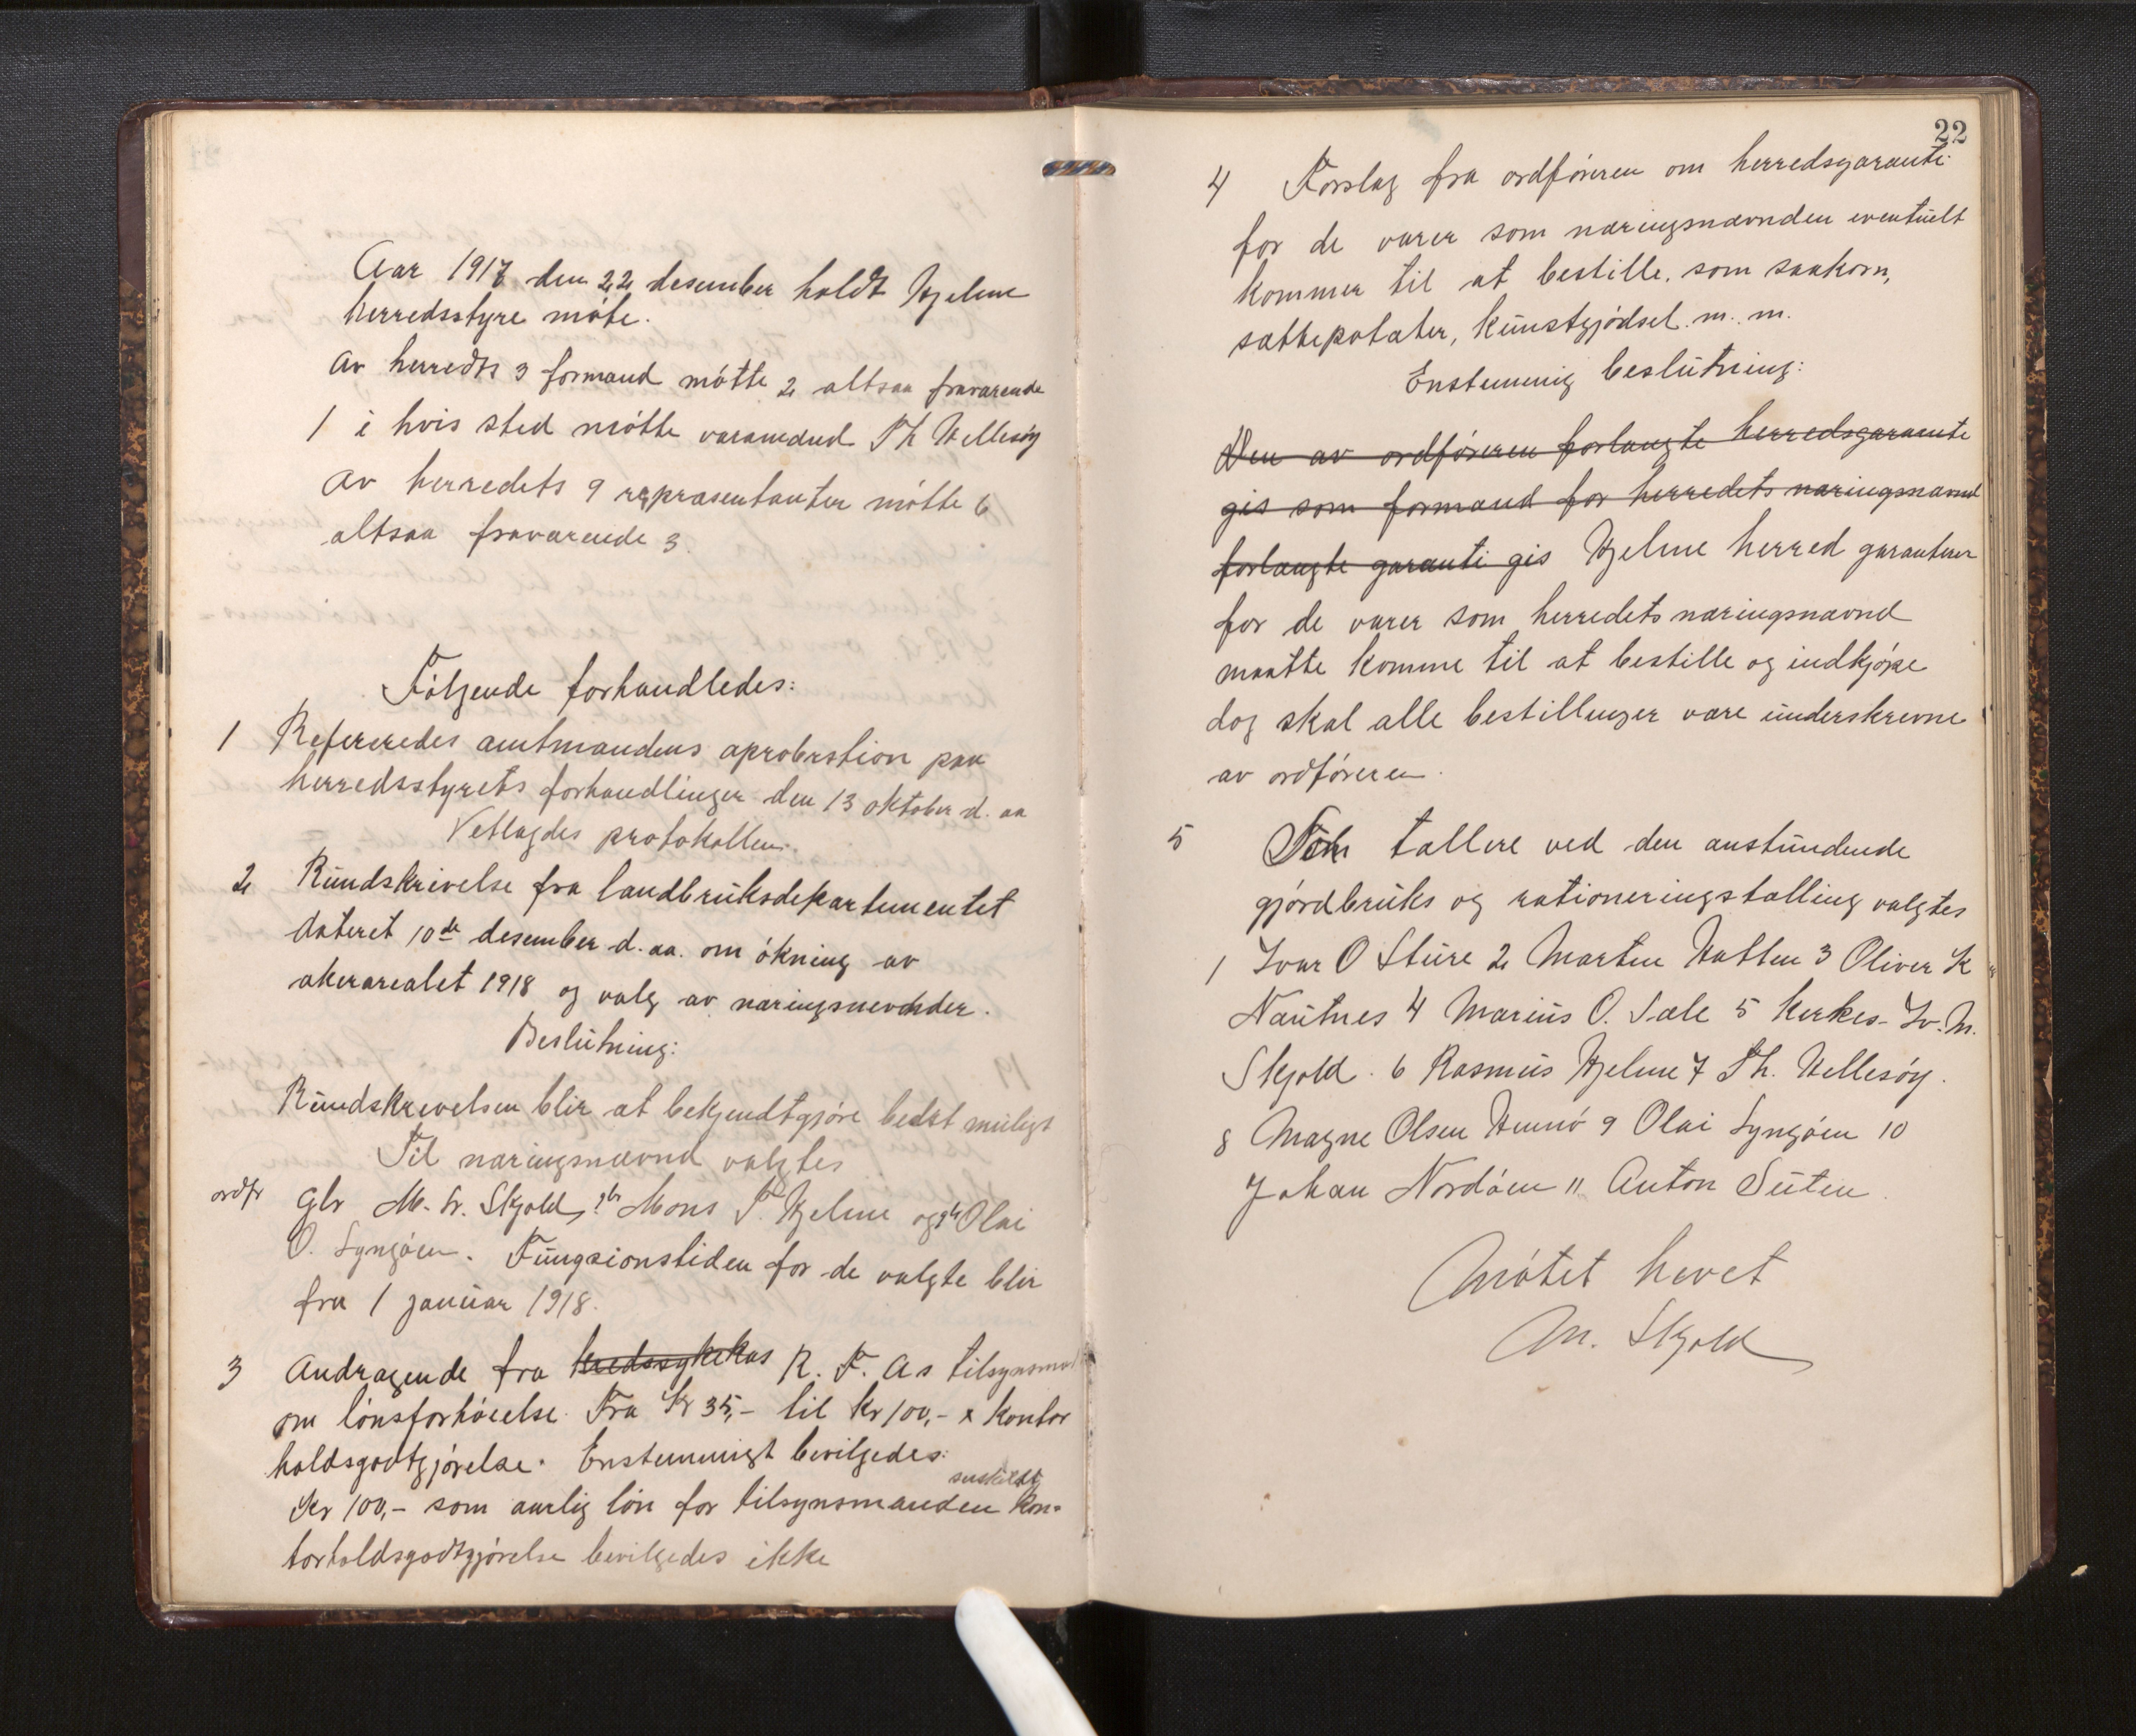 Aar 1917 den 22 desember holdt Hjelme
herredsstyre møte.
Av herredts 3 formænd møtte 2 altsaa fraværende
1 i hvis sted møtte varamdnd Th Hellesøy
Av herredets 9 repræsentanter møtte 6
altsaa fraværende 3.
Følgende forhandledes:
1 Refereredes amtmandens aprobration paa
herredsstyrets forhandlinger den 13 oktober d. aa
Vetlagdes protokollen.
2 Rundskrivelse fra landbruksdepartementet
dateret 10de desember d. aa. om økning av
akerarealet 1918 og valg av næringsnevnder.
Beslutning:
Rundskrivelsen blir at bekjendtgjøre bedst muligt
Til næringsnævnd valgtes
ordfr Gbr M. Iv. Skjold, gbr Mons T. Hjelme og gbr Olai
O. Lyngøen. Fungsionstiden for de valgte blir
fra 1 januar 1918.
3 Andragende fra kredssykekas R. F. As tilsynsmand
om lønsforhøielse. Fra Kr 35,- til Kr 100,- x kontor
holdsgodtgjørelse. Enstemmigt bevilgedes:
særskildt
Kr 100,- som aarlig løn for tilsynsmanden kon-
torholdsgodtgjørelse bevilgedes ikke
22
4 Forslag fra ordføreren om herredsgaranti
for de varer som næringsnævnden eventuelt
kommer til at bestille, som saakorn,
sættepotater, kunstgjødsel m. m.
Enstemmig beslutning:
Den av ordføreren forlangte herredsgarante
gis som formand for herredets næringsnævnd
forlangte garanti gis Hjelme herred garanterer
for de varer som herredets næringsnævnd
maatte komme til at bestille og indkjøpe
dog skal alle bestillinger være underskrevne
av ordføreren.
5 Som tællere ved den anstundende
gjordbruks og rationeringstælling valgtes
1 Ivar O Sture 2 Marten Hatten 3 Oliver K
Nautnes 4 Marius O. Sæle 5 Kirkes. Iv. M.
Skjold. 6 Rasmus Hjelme 7 Th. Hellesøy.
8 Magne Olsen Hernø 9 Olai Lyngøen 10
Johan Nordøen 11 Anton Suten.
Møtet hevet
M. Skjold